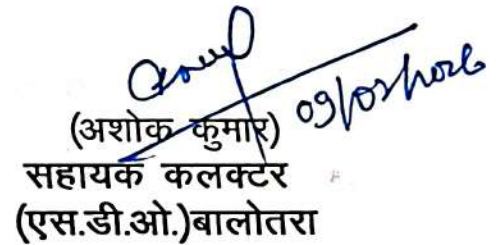 09/02/2026
(अशोक कुमार)
सहायक कलक्टर
(एस.डी.ओ.)बालोतरा